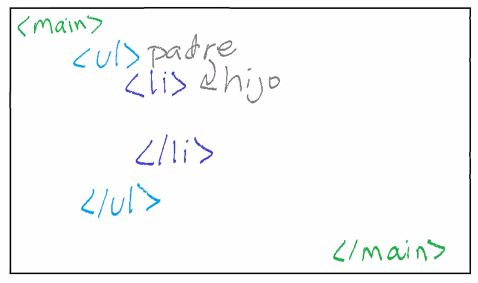 <main>
<ul> padre
<li> hijo
</li>
</ul>
</main>